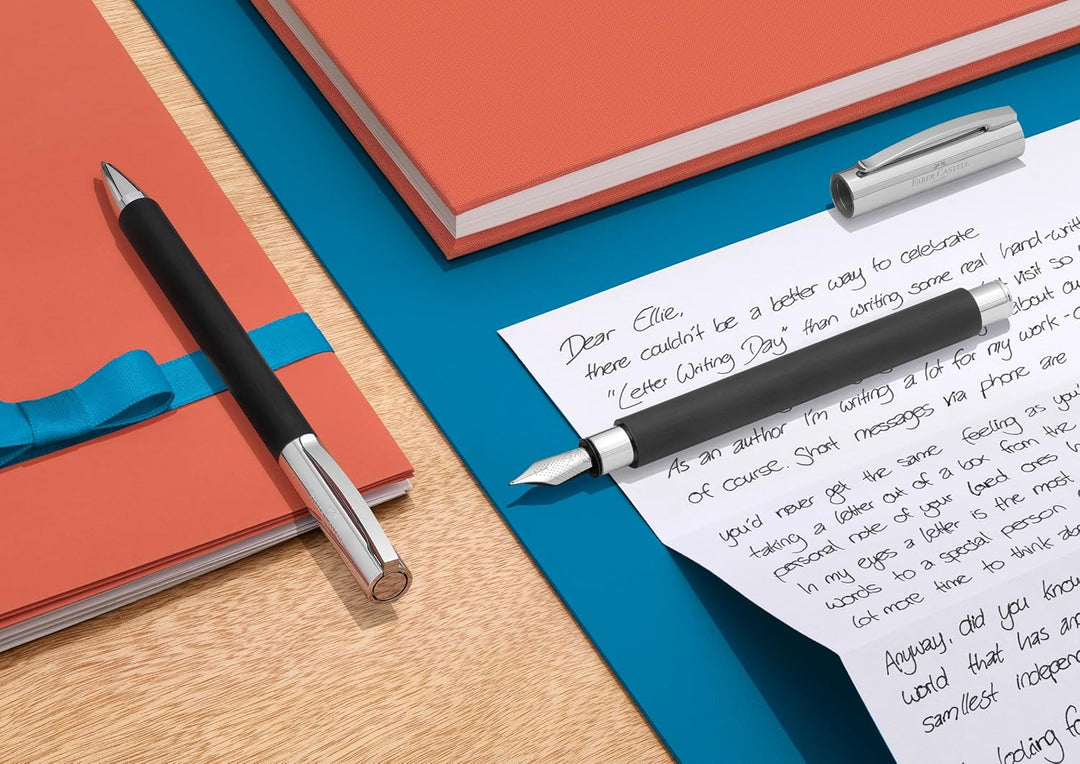 FABER-CASTELL
Dear Ellie,
there couldn't be a better way to celebrate
"Letter Writing Day" than writing some real hand-writt
visit so
about ou
As an author I'm writing a lot for my work-
of course. Short messages via phone are
you'd never get the same feeling as you
taking a letter out of a box from the
personal note of your loved ones
In my eyes a letter is the most
words to a special person
lot more time to think ab
Anyway, did you know
world that has an
samllest indepen
looking fo